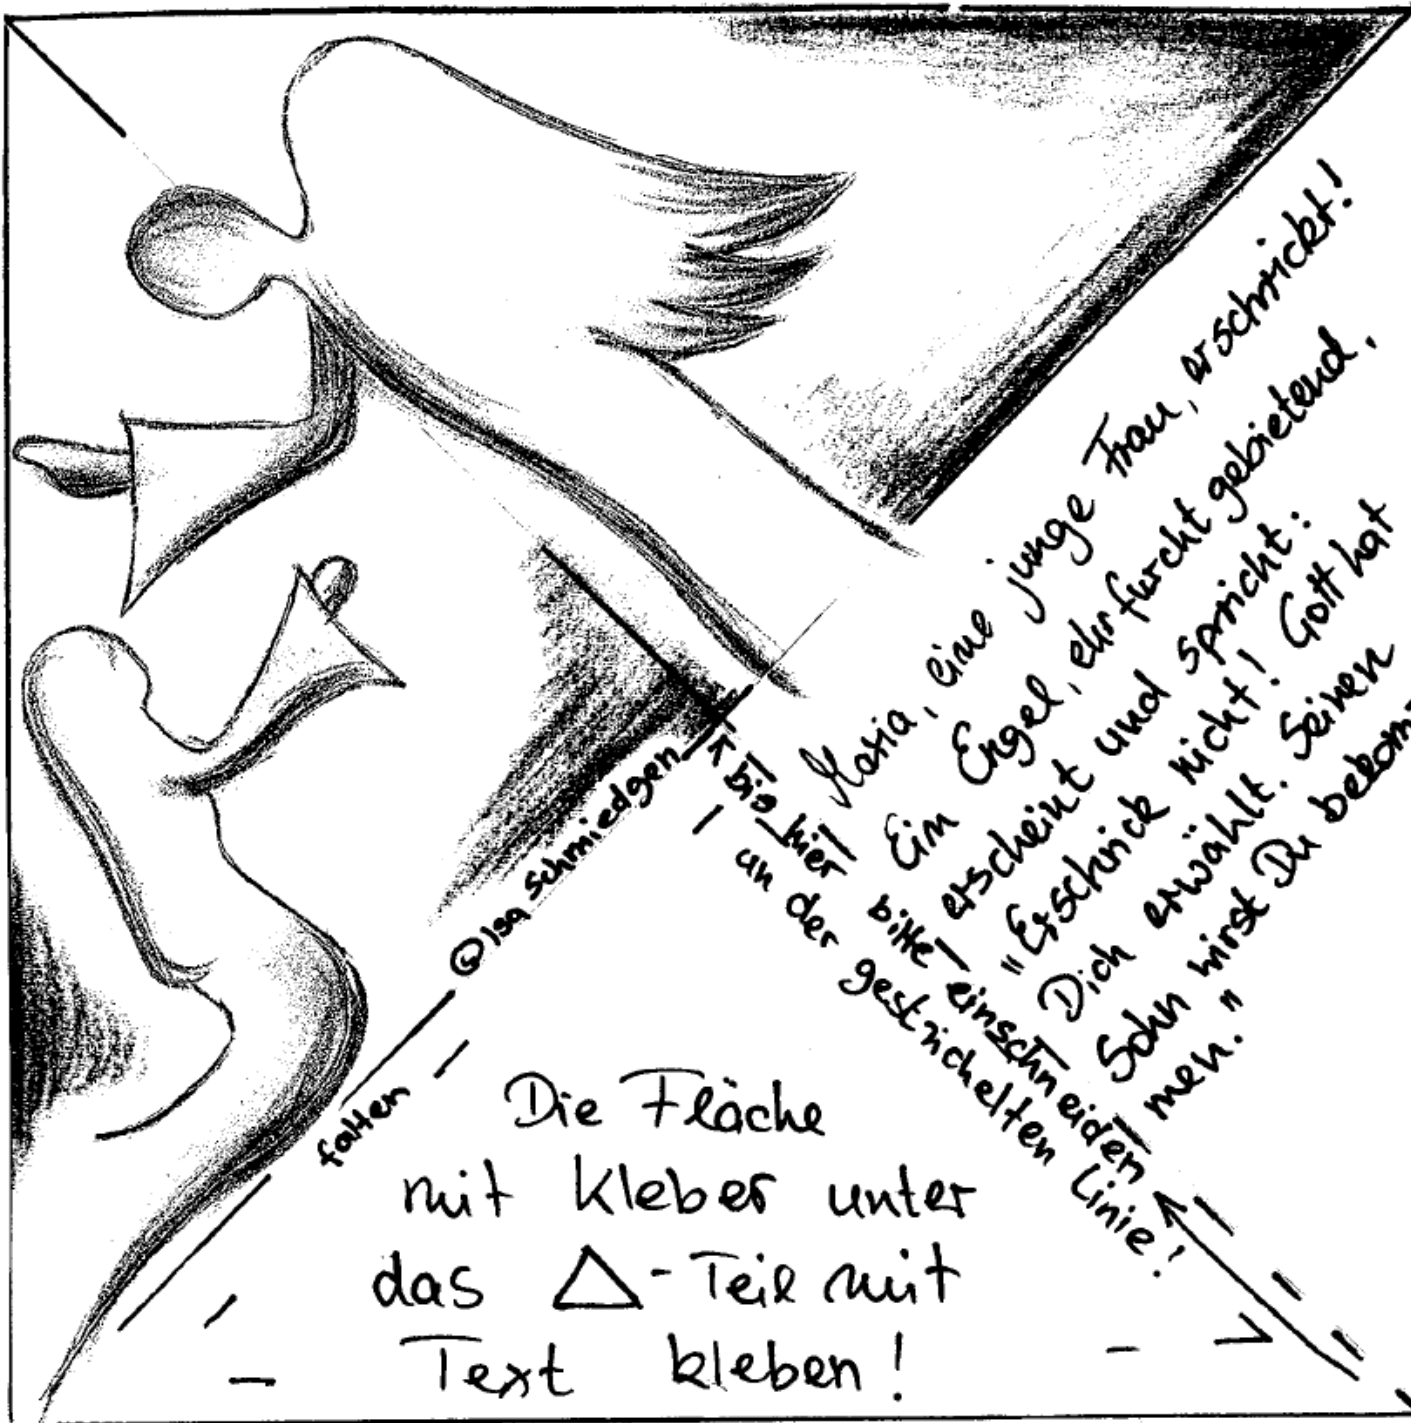 Maria, eine junge Frau, erschrickt!
Ein Engel, ehrfurcht gebietend,
erscheint und spricht:
"Erschrick nicht! Gott hat
Dich erwählt. Seinen
Sohn wirst Du bekom-
men."
bis hier bitte einschneiden
an der gestrichelten Linie!
© Isa Schmiedgen
falten
Die Fläche
mit Kleber unter
das △-Teil mit
Text kleben!